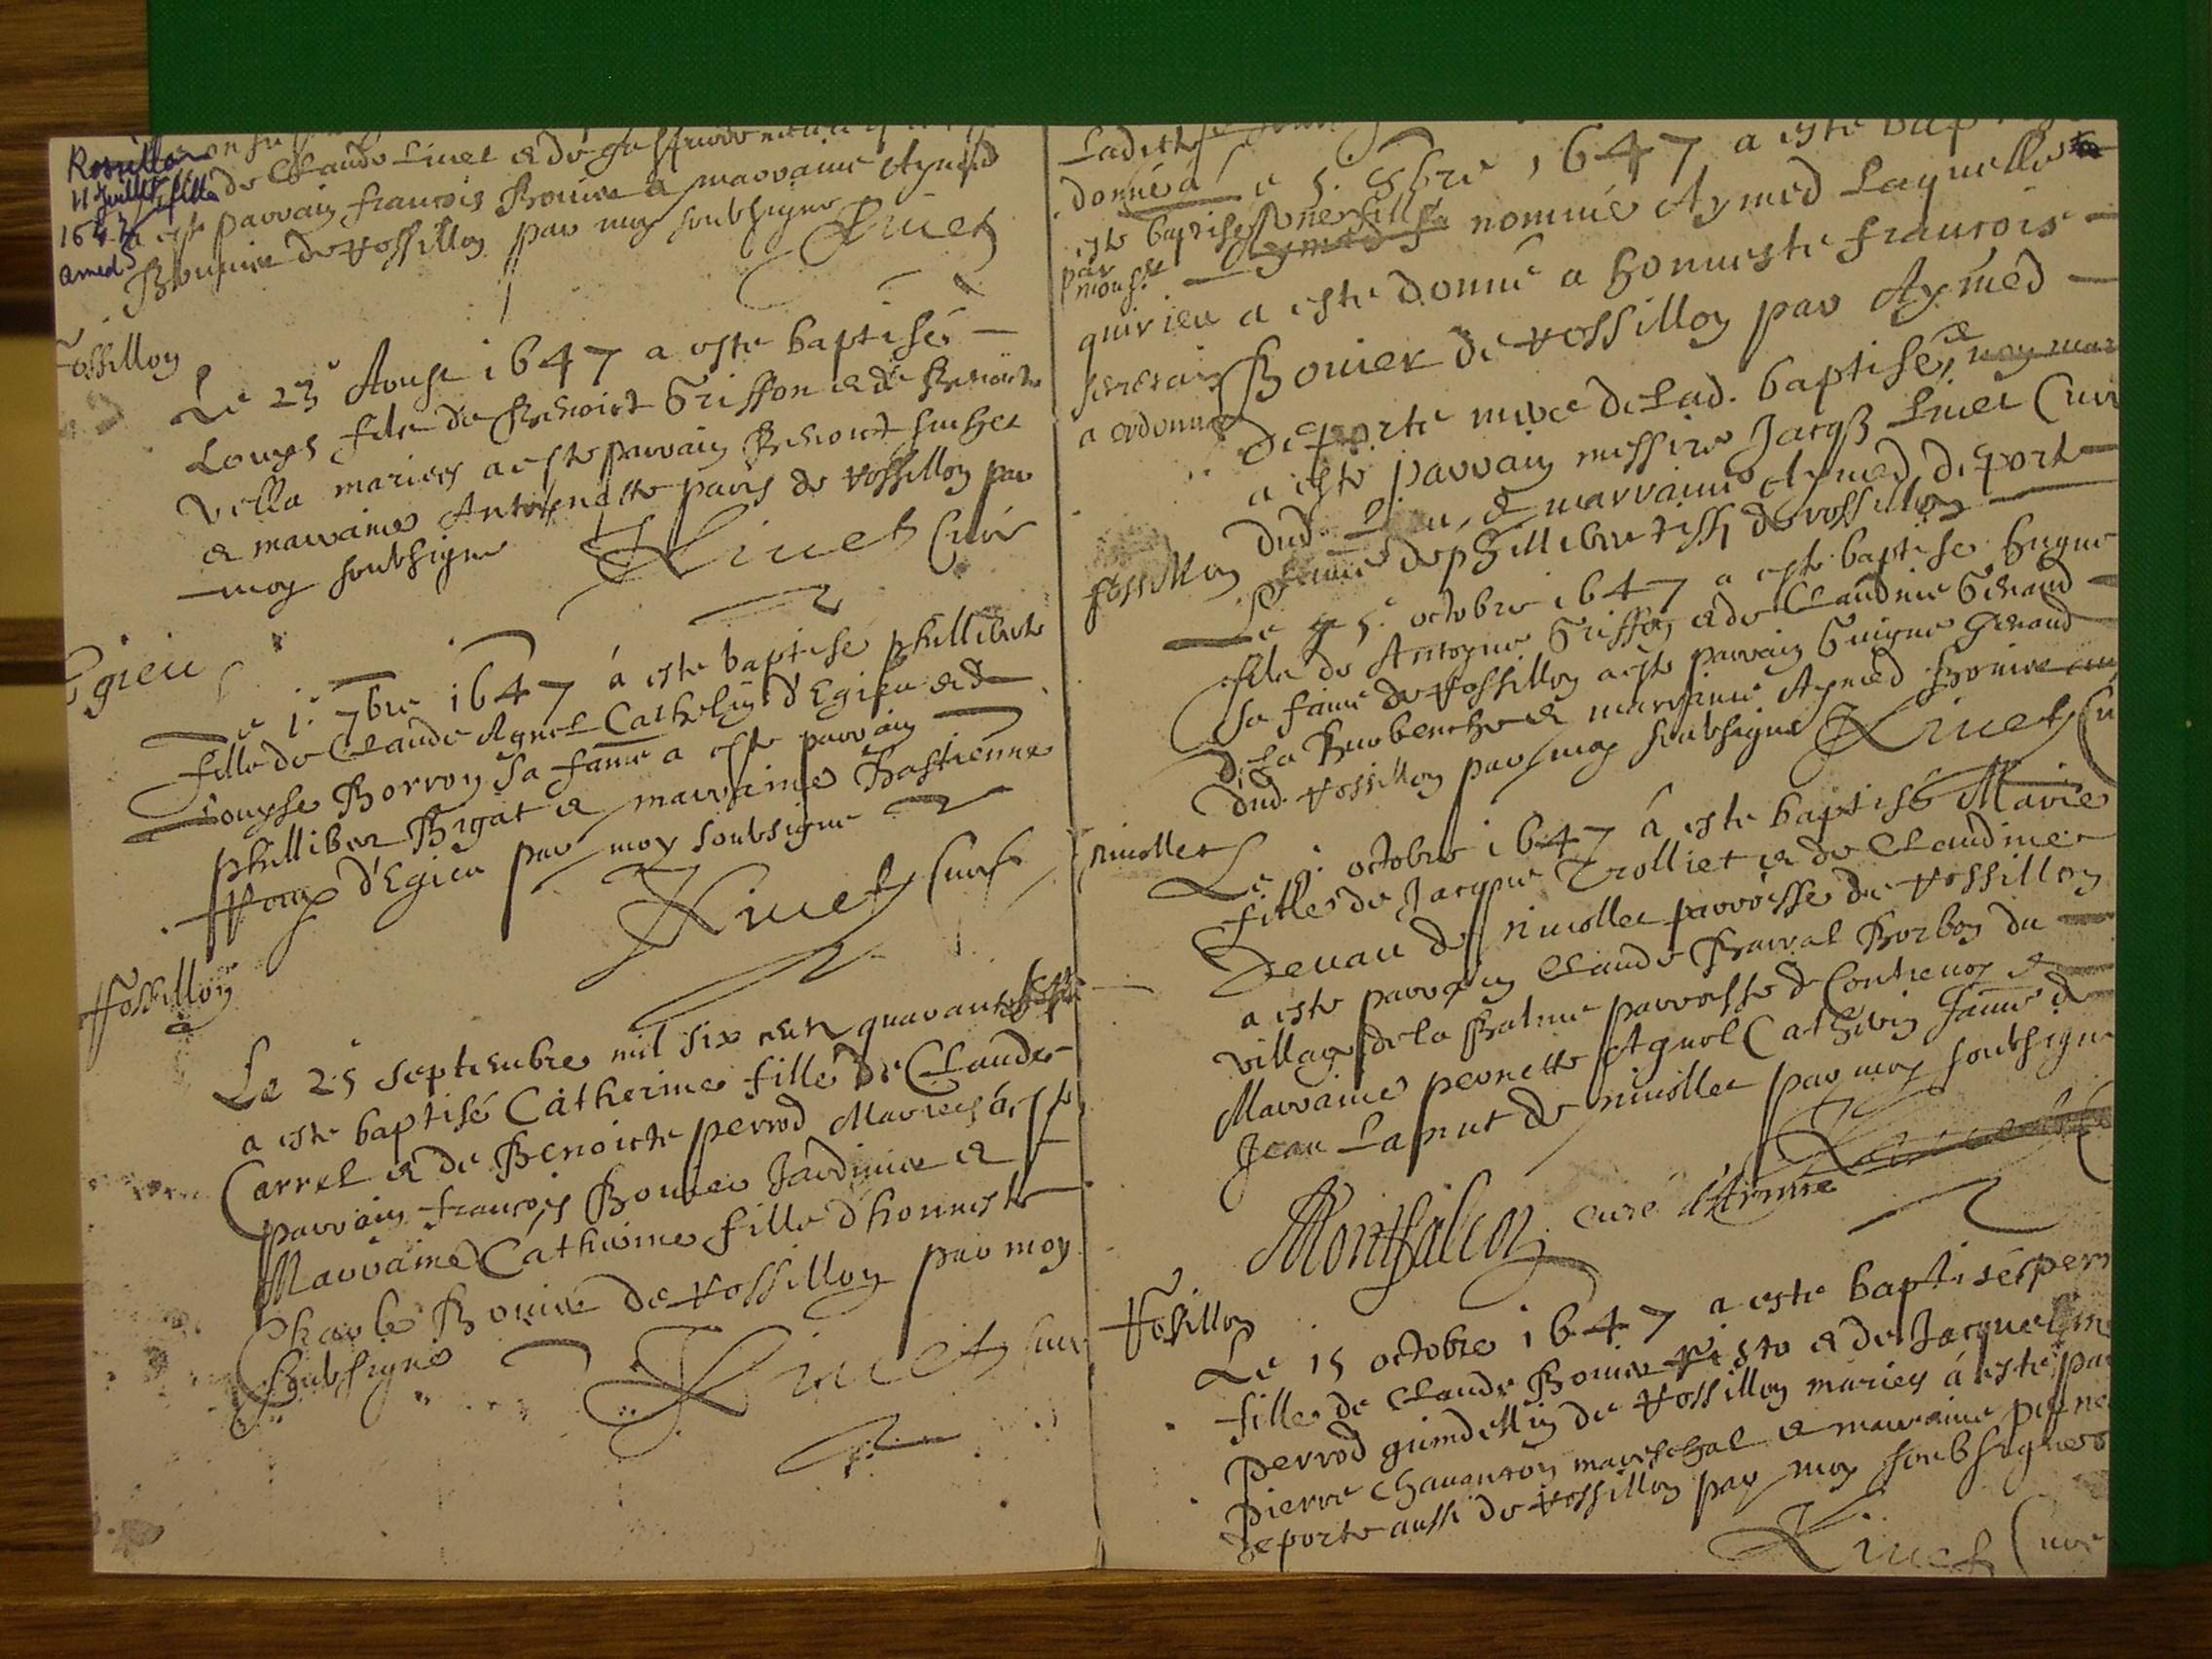 Rossillon
11 Juillet
1647
amed
fille de Claude Livet & de
a este parrain francois Bouvier & marraine Aymed
Bouvier de Rossillon par moy soubsigne
Livet
Rossillon
Le 23 Aoust 1647 a este baptisé
Louys fils de Benoist Griffon & de Benoiste
Vella mariez a este parrain Benoist
& marraine Anthoinette paris de Rossillon par
moy soubsigne Livet Curé
Egieu
Le 1. 7bre 1647 á este baptisé phillberte
fille de Claude Agnel Cathelin d'Egieu & de
Louyse Borron sa famē a este parrain
philliber Bigat & marraine Bastienne
d'Egieu par moy soubsigne
Livet Curé
Rossillon
Le 25 Septembre mil six cent quarante sept
a este baptisé Catherine fille de Claude
Carrel & de Benoicte perrod Mariez á este
parrain francois Bouvier Jardinier &
Marraine Catherine fille d'honneste
Charle Bouvier de Rossillon par moy
Soubsigne Livet Curé
Ladicte
donnéa Le 5. 8bre 1647 a este
este baptisee une fille nommé Aymed Laquelle
par
mons.r
quirieu a este donné a honneste francois
Bouier de Rossillon par Aymed
a ordonné
Deporte mere de Lad. baptisée
a este parrain messire Jacqs Livet Curé
dud. lieu, & marraine Aymed deporte
famē de phillibert de Rossillon
Rossillon
Le 5. octobre 1647 a este baptisé hugue
fils de Antoyne Griffon & de Claudine Girand
sa famē de Rossillon a este parrain Guigne Girand
de la Burbenche & marraine Aymed Bouvier
dud. Rossillon par moy soubsigne Livet Cu
nivollet
Le octobre 1647 á este baptisé Marie
fille de Jacque Trolliet & de Claudine
Devau de nivollet parroisse de Rossillon
a este parrain Claude Barral Borbon du
village de la Balme parroisse de Contrevoz &
Marraine pernette Agnel Cathelin famē de
Jean Laput de nivollet par moy soubsigne
Montfalcon curé d'Arme
Rossillon
Le 15 octobre 1647 a este baptisé pern
fille de Claude Bouvier & de Jacqueline
perrod guindellin de Rossillon mariez á este par
pierre Chavanron mareschal & marraine perne
Deporte aussi de Rossillon par moy soubsigne
Livet Curé